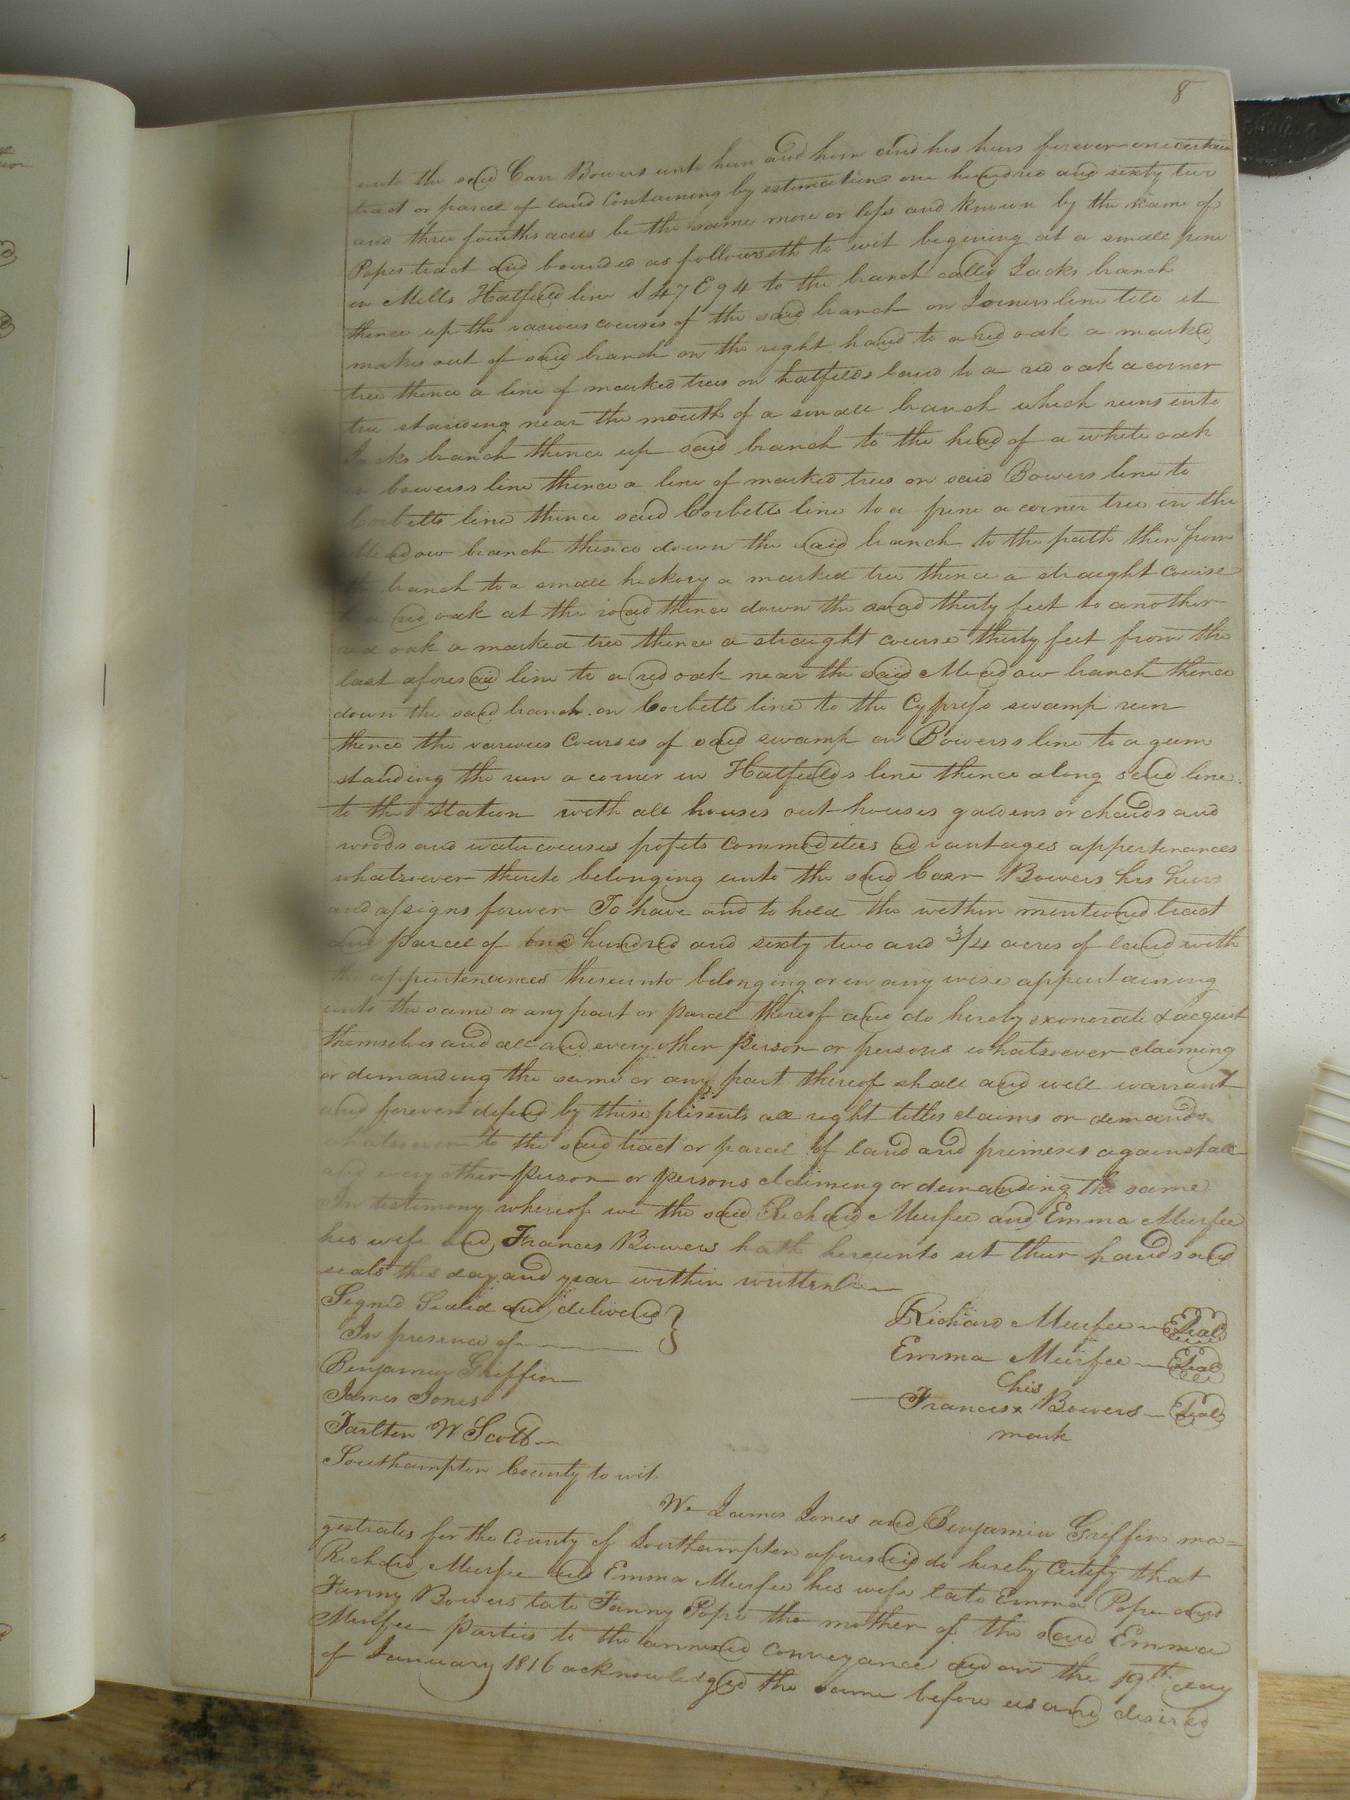 8
unto the said Carr Bowers unto him and him and his heirs forever one certain
tract or parcel of land Containing by estimation one hundred and sixty two
and three fourths acres be the same more or less and known by the name of
Popes tract and bounded as followeth to wit begining at a small pine
in Mills Hatfield line S 47 E 94 to the branch called Jacks branch
thence up the various courses of the said branch on Joiners line till it
makes out of said branch on the right hand to a red oak a marked
tree thence a line of marked trees on hatfields land to a red oak a corner
tree standing near the mouth of a small branch which runs into
Jacks branch thence up said branch to the head of a white oak
in bowerss line thence a line of marked trees on said Bowers line to
Corbetts line thence said Corbetts line to a pine a corner tree in the
Meadow branch thence down the said branch to the path then from
the branch to a small hickory a marked tree thence a straight course
to a red oak at the road thence down the road thirty feet to another
red oak a marked tree thence a straight course thirty feet from the
last aforesaid line to a red oak near the said Meadow branch thence
down the said branch on Corbetts line to the Cypress swamp run
thence the various Courses of said swamp on Bowerss line to a gum
standing the run a corner in Hatfields line thence along said line
to the Station with all houses out houses gardens orchards and
woods and watercourses profits commodities advantages appertenances
whatsoever thereto belonging unto the said Carr Bowers his heirs
and assigns forever To have and to hold the within mentioned tract
and parcel of one hundred and sixty two and 3/4 acres of land with
the appertenances thereunto belonging or in any wise appertaining
unto the same or any part or parcel thereof and do hereby exonerate & acquit
themselves and all and every other person or persons whatsoever claiming
or demanding the same or any part thereof shall and will warrant
and forever defend by these presents all right titles claims or demands
whatsoever to the said tract or parcel of land and primises against all
and every other person or persons claiming or demanding the same
In testimony whereof we the said Richard Murfee and Emma Murfee
his wife and Frances Bowers hath hereunto set their hands and
seals this day and year within written
Signed Sealed and delivered }
In presence of
Benjamin Griffin
James Jones
Tarlton W Scott
Richard Murfee Seal
Emma Murfee Seal
his
Frances x Bowers Seal
mark
Southampton County to wit
We James Jones and Benjamin Griffin ma=
gestrates for the County of Southampton aforesaid do hereby Certify that
Richard Murfee and Emma Murfee his wife late Emma Pope and
Fanny Bowers late Fanny Pope the mother of the said Emma
Murfee parties to the annexed conveyance did on the 19th day
of January 1816 acknowledged the same before us and desired